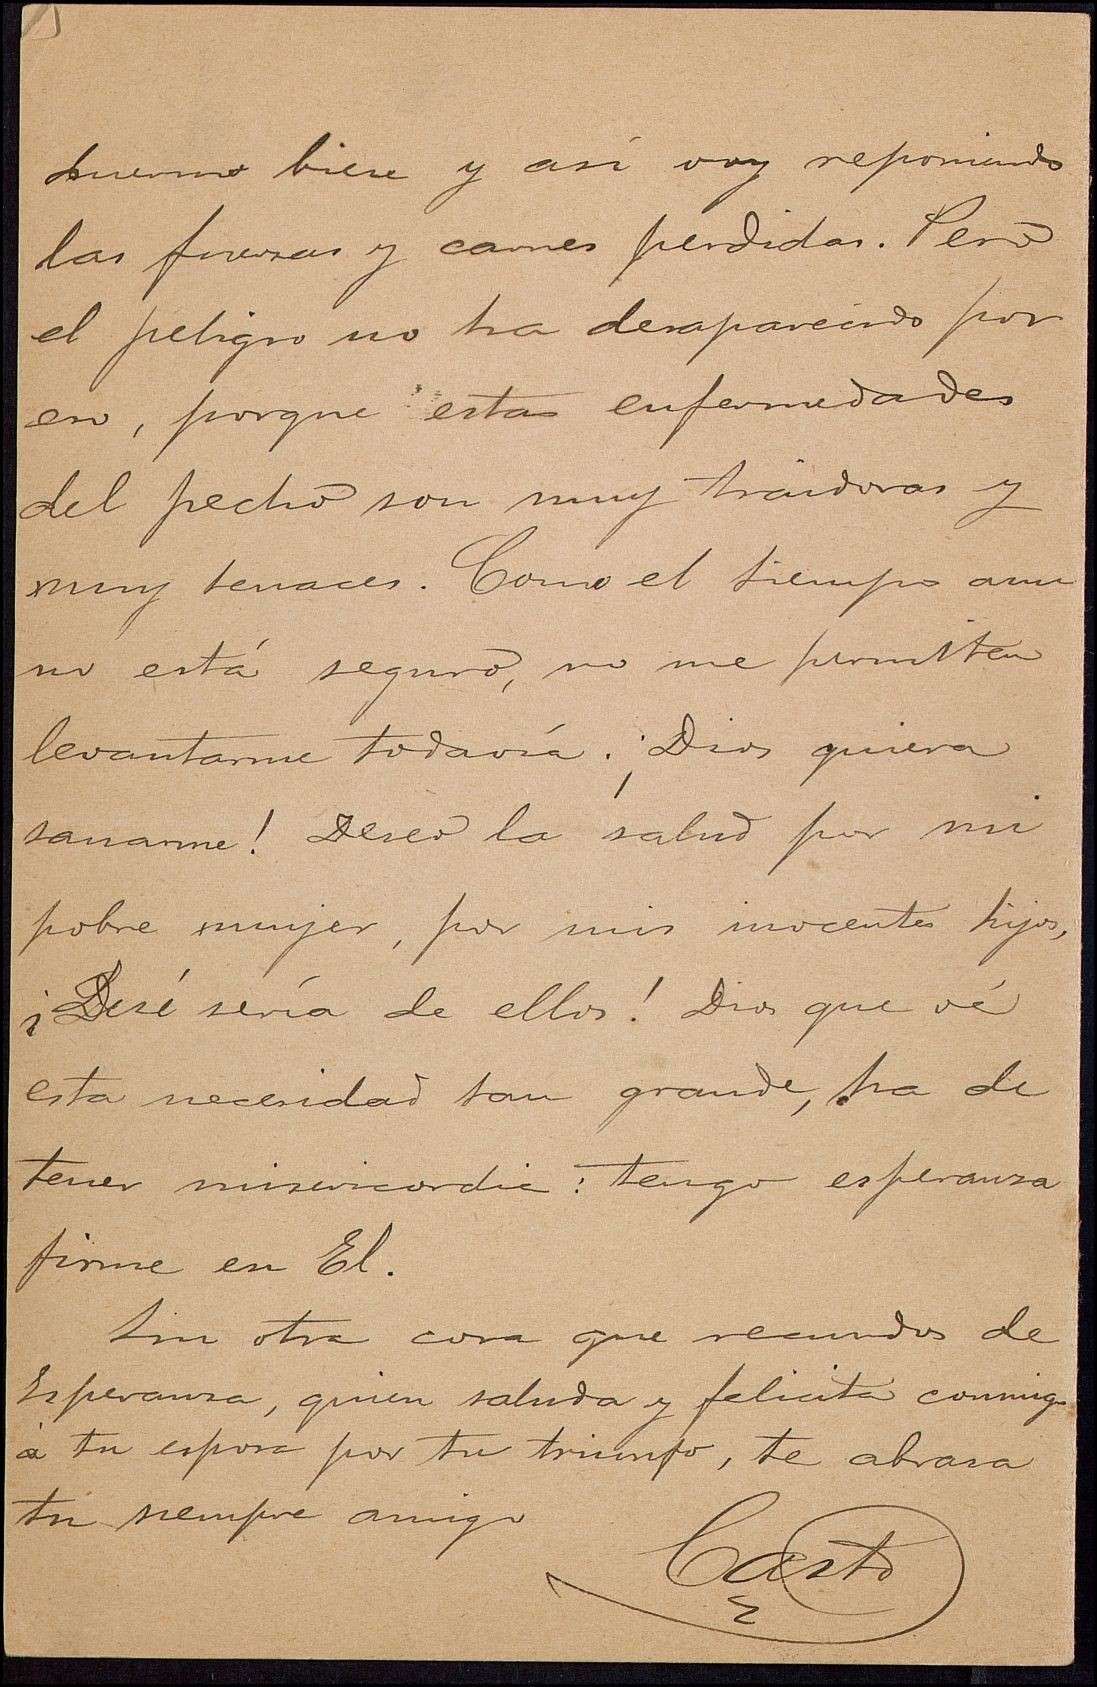 duermo bien y así voy reponiendo
las fuerzas y carnes perdidas. Pero
el peligro no ha desaparecido por
eso, porque estas enfermedades
del pecho son muy traidoras y
muy tenaces. Como el tiempo aun
no está seguro, no me permiten
levantarme todavía. ¡Dios quiera
sanarme! Deseo la salud por mi
pobre mujer, por mis inocentes hijos,
¡ sería de ellos! Dios que vé
esta necesidad tan grande, ha de
tener misericordia: tengo esperanza
firme en El.
Sin otra cosa que recuerdos de
Esperanza, quien saluda y felicita conmigo
á tu esposa por tu triunfo, te abraza
tu siempre amigo
Casto